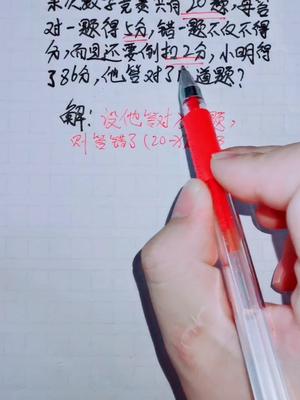 某次数学竞赛共有20题,每答
对一题得5分,错一题不仅不得
分,而且还要倒扣2分,小明得
了86分,他答对了 道题?
解:设他答对 题,
则答错了(20-